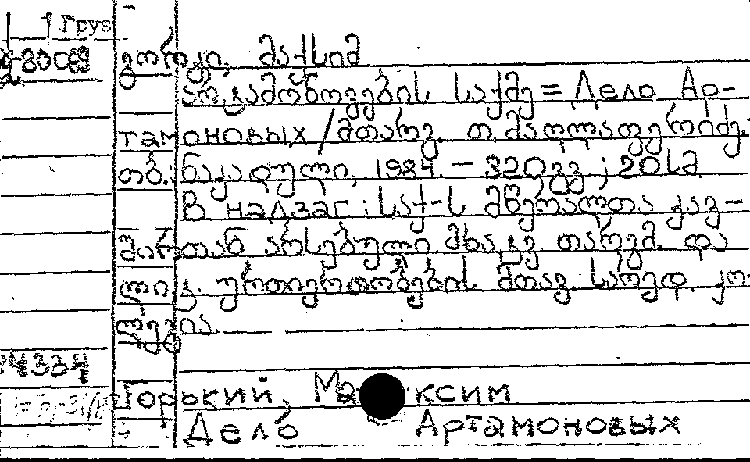 Груз
გორკი, მაქსიმ
არტამონოვების საქმე = Дело Ар-
тамоновых / მთარგ. თ. მაღლაფერიძე.
თბ. ნაკადული, 1984. — 320 გვ ; 20 სმ
В надзаг : საქ-ს მწერალთა კავ-
შირთან არსებული მხატვ. თარგმ. და
ლიტ. ურთიერთობების მთავ. სარედ. კო-
ლეგია.
Горький, Максим
Дело Артамоновых